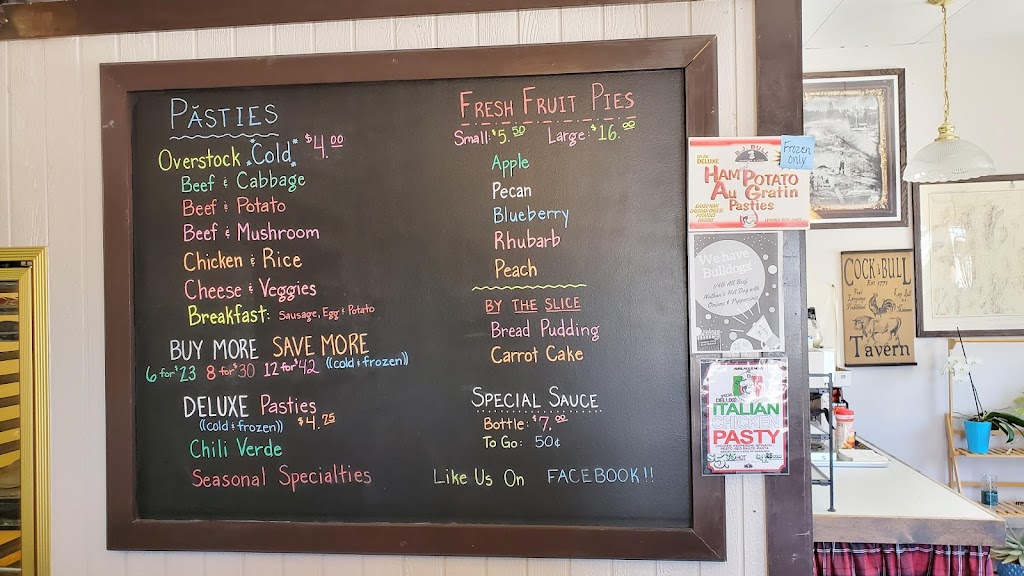 PĂSTIES
Overstock *Cold* $4.00
Beef & Cabbage
Beef & Potato
Beef & Mushroom
Chicken & Rice
Cheese & Veggies
Breakfast: Sausage, Egg & Potato
BUY MORE SAVE MORE
6 for $23 8 for $30 12 for $42 ((cold & frozen))
DELUXE Pasties
((cold & frozen)) $4.75
Chili Verde
Seasonal Specialties
FRESH FRUIT PIES
Small: $5.50 Large: $16.00
Apple
Pecan
Blueberry
Rhubarb
Peach
BY THE SLICE
Bread Pudding
Carrot Cake
SPECIAL SAUCE
Bottle: $7.00
To Go: 50¢
Like Us On FACEBOOK!!
Frozen only
B.J. BULL
DELUXE
HAM POTATO
AU GRATIN
Pasties
We have
Bulldogs!
1/4lb All Beef
Nathan's Hot Dog with
Onions & Pepperoncini
DELUXE
ITALIAN
CHICKEN
PASTY
COCK & BULL
EST 1771
Tavern